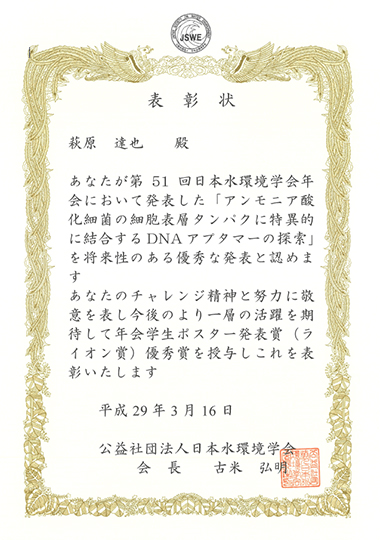 JSWE
表彰状
萩原 達也 殿
あなたが第 51 回日本水環境学会年
会において発表した「アンモニア酸
化細菌の細胞表層タンパクに特異的
に結合するDNAアプタマーの探索」
を将来性のある優秀な発表と認めま
す
あなたのチャレンジ精神と努力に敬
意を表し今後のより一層の活躍を期
待して年会学生ポスター発表賞（ラ
イオン賞）優秀賞を授与しこれを表
彰いたします
平成 29 年 3 月 16 日
公益社団法人日本水環境学会
会 長 古米 弘明